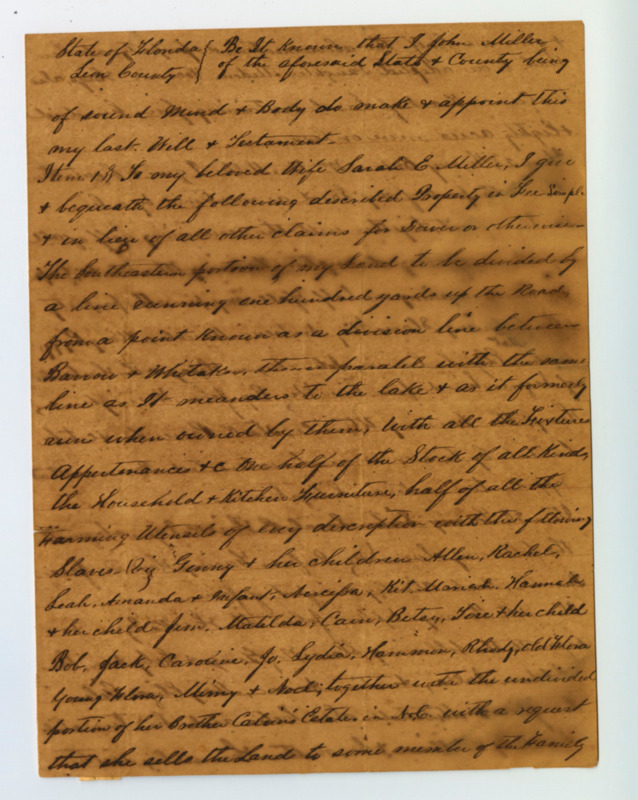 State of Florida { Be It Known that I John Miller
Leon County { of the aforesaid State & County being
of sound Mind & Body do make & appoint this
my last Will & Testament.
Item 1st To my beloved Wife Sarah E Miller, I give
& bequeath the following described Property in Fee Simple
& in lieu of all other claims for Dower or otherwise
The Southeastern portion of my Land to be divided by
a line running one hundred yards up the Road
from a point Known as a division line between
Barrow & Whitaker, thence paralel with the same
line as It meanders to the lake & as it formerly
run when owned by them, With all the Fixtures
Appertenances &c One half of the Stock of all Kinds,
the Household & Kitchen Furniture, half of all the
Farming Utensils of every description with the following
Slaves Viz Ginny & her children Allen, Rachel,
Leah, Amanda & Infant, Narcissa, Kit, Mariah, Hannah
& her child Jim, Matilda, Cain, Betsy, & her child
Bob, Jack, Caroline, Jo, Lydia, Hammon, Rhody, Old Flora
Young Flora, Mimy & together with the undivided
portion of her Brother Calvin's Estate in N.C. with a request
that she sells the Land to some member of the Family